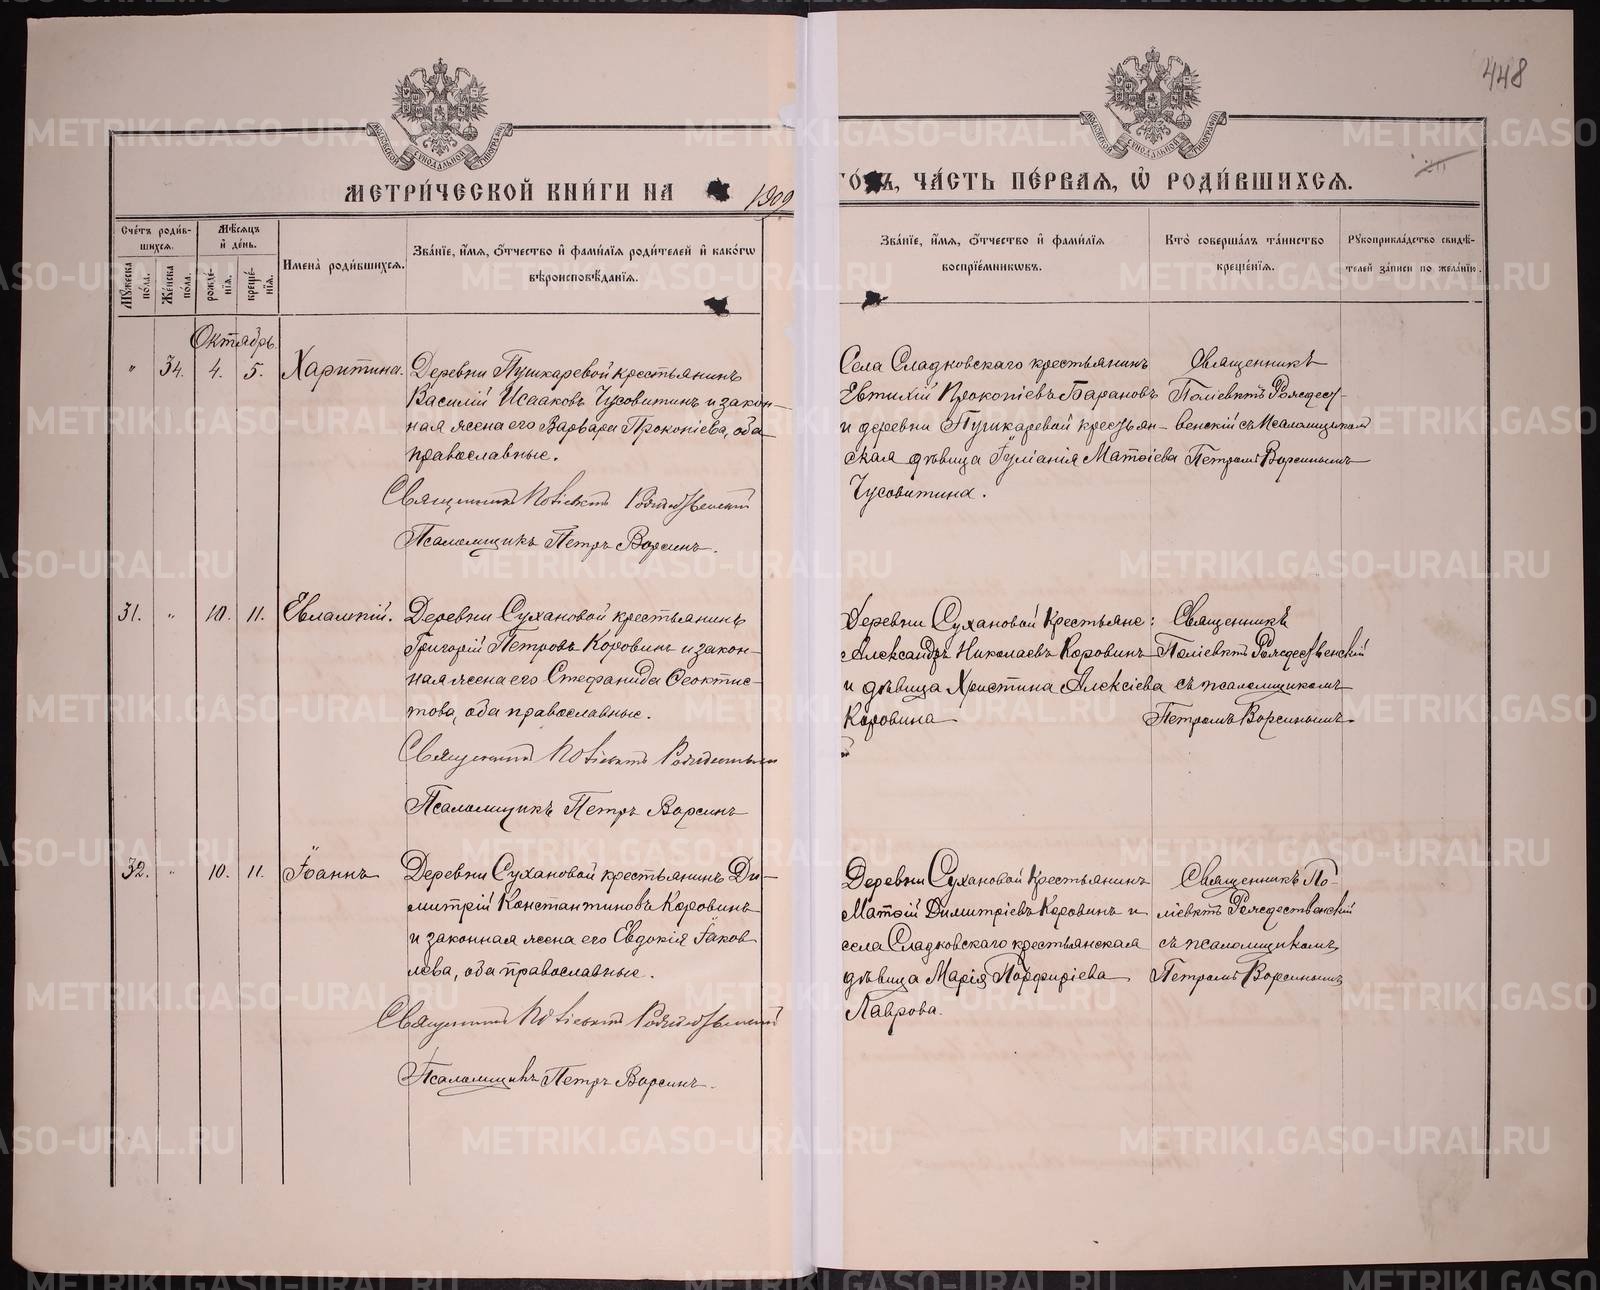 448
МЕТРИ́ЧЕСКОЙ КНИ́ГИ НА 1909 ГО́ДЪ, ЧА́СТЬ ПЕ́РВАЯ, Ѡ҆ РОДИ́ВШИХСЯ.
Сче́тъ роди́в-
шихся.
Му́жеска по́ла.
Же́нска по́ла.
Мѣ́сяцъ
и҆ де́нь.
рожде́-
нїя.
креще́-
нїя.
И҆мена̀ роди́вшихся.
Зва́нїе, и҆́мя, ѻ҆́тчество и҆ фами́лїя роди́телей и҆ како́гѡ
вѣроисповѣ́данїя.
Зва́нїе, и҆́мя, ѻ҆́тчество и҆ фами́лїя
воспрїе́мникѡвъ.
Кто̀ соверша́лъ та́инство
креще́нїя.
Рꙋкоприкла́дство свидѣ́-
телей за́писи по жела́нїю.
Октябрь.
" 34. 4. 5. Харитина.
Деревни Пушкаревой крестьянинъ
Василій Исааковъ Чусовитинъ и закон-
ная жена его Варвара Прокопіева, оба
православные.
Священникъ Поліевктъ Рождественскій
Псаломщикъ Петръ Ворсинъ.
Села Сладковскаго крестьянинъ
Евтихій Прокопіевъ Барановъ
и деревни Пушкаревой крестьян-
ская дѣвица Іуліанія Матѳіева
Чусовитина.
Священникъ
Поліевктъ Рождест-
венскій съ псаломщикомъ
Петромъ Ворсинымъ
31. " 10. 11. Евлампій.
Деревни Сухановой крестьянинъ
Григорій Петровъ Коровинъ и закон-
ная жена его Стефанида Ѳеоктис-
това, оба православные.
Священникъ Поліевктъ Рождественскій
Псаломщикъ Петръ Ворсинъ
Деревни Сухановой Крестьяне:
Александръ Николаевъ Коровинъ
и дѣвица Христина Алексіева
Коровина
Священникъ
Поліевктъ Рождественскій
съ псаломщикомъ
Петромъ Ворсинымъ.
32. " 10. 11. Іоаннъ
Деревни Сухановой крестьянинъ Ди-
митрій Константиновъ Коровинъ
и законная жена его Евдокія Іаков
лева, оба православные.
Священникъ Поліевктъ Рождественскій
Псаломщикъ Петръ Ворсинъ.
Деревни Сухановой Крестьянинъ
Матѳій Димитріевъ Коровинъ и
села Сладковскаго крестьянская
дѣвица Марія Порфиріева
Лаврова.
Священникъ По-
ліевктъ Рождественскій
съ псаломщикомъ
Петромъ Ворсинымъ
METRIKI.GASO-URAL.RU